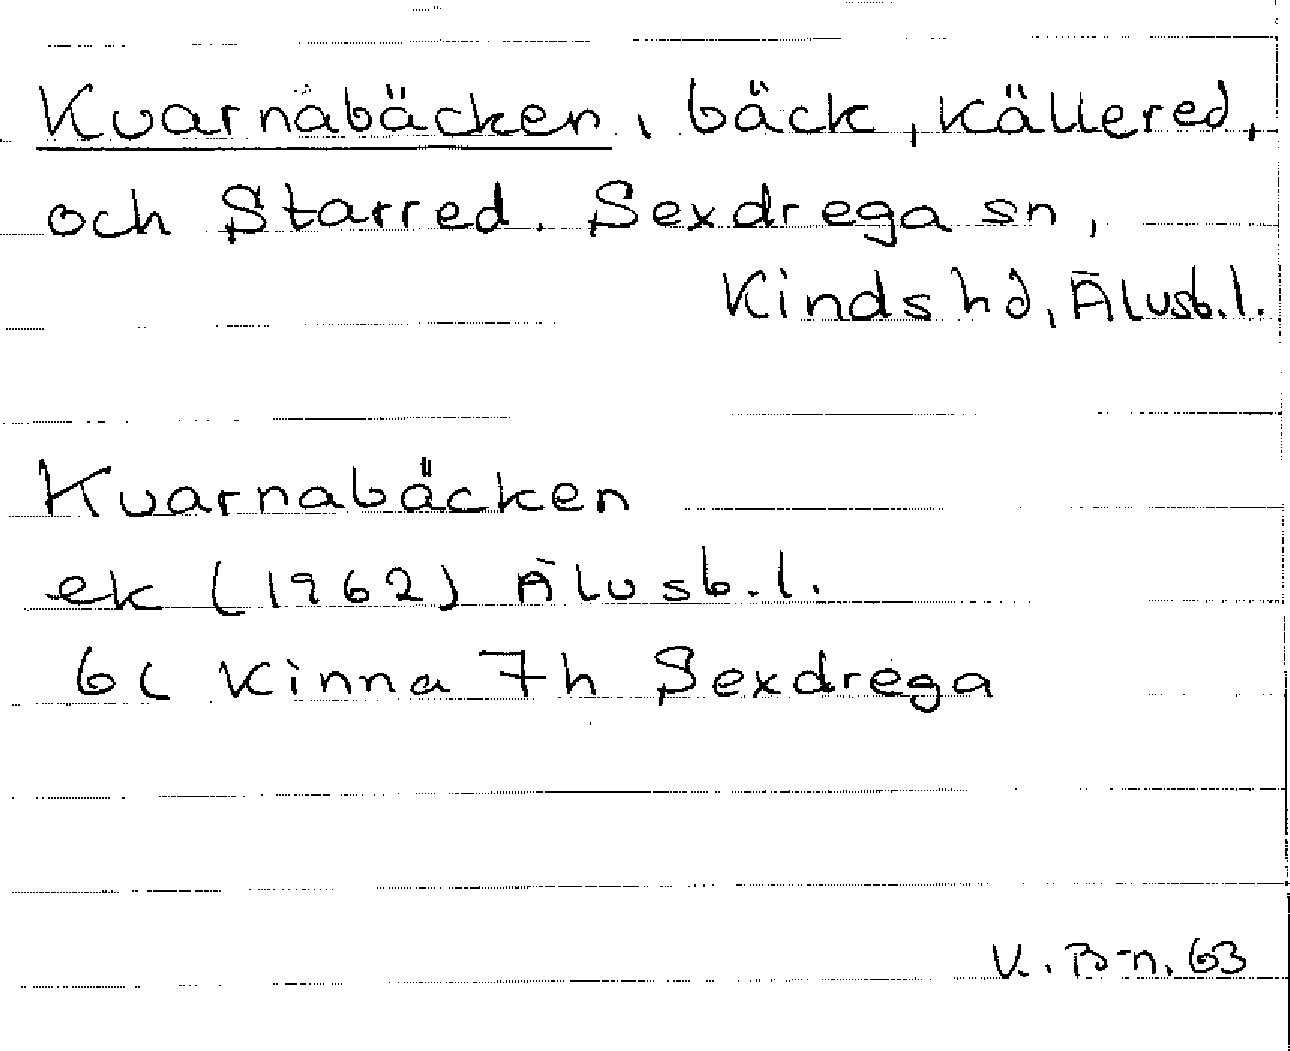 Kvarnabäcken, bäck, Källered,
och Starred. Sexdrega sn,
Kinds hd, Älvsb.l.
Kvarnabäcken
ek (1962) Älvsb.l.
6C Kinna 7h Sexdrega
K. B-n. 63